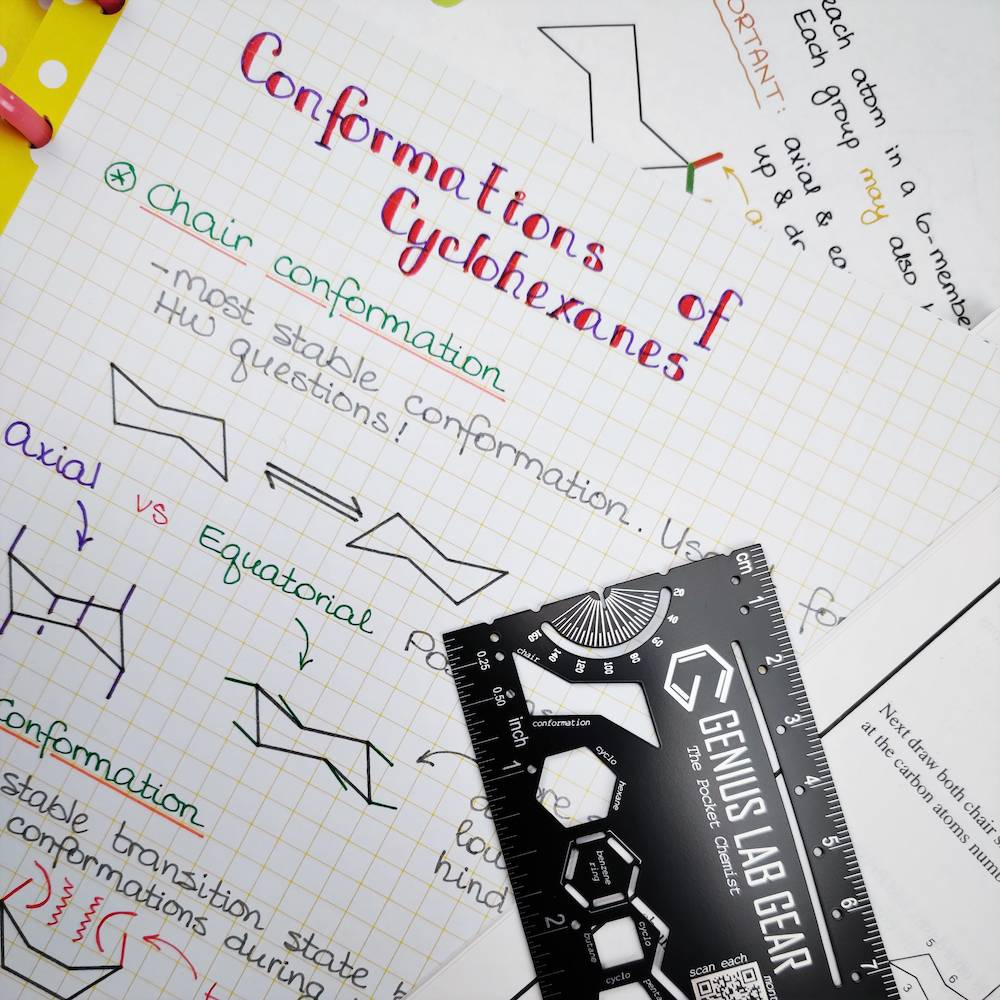 Conformations of
Cyclohexanes
Chair conformation
-most stable conformation.
HW questions!
axial
vs
Equatorial
Conformation
stable transition state
conformations during
each atom in a 6-membe
Each group may also
ORTANT:
axial &
up &
cm
1
2
3
4
5
6
7
20
40
60
80
100
120
140
160
0.25
0.50
inch
1
2
chair
conformation
cyclo
hexane
benzene
ring
cyclo
butane
cyclo
penta
GENIUS LAB GEAR
The Pocket Chemist
scan each
Next draw both chair
at the carbon atoms num
5
6
3